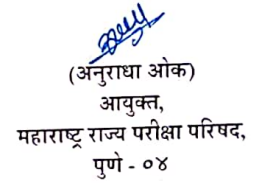 (अनुराधा ओक)
आयुक्त,
महाराष्ट्र राज्य परीक्षा परिषद,
पुणे - ०४